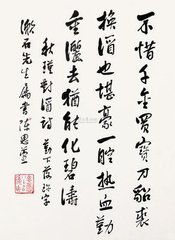 不惜千金買寶刀貂裘
換酒也堪豪一腔熱血勤
重灑去猶能化碧濤
秋瑾對酒詩 勤下落珍字
漱石先生屬書 陳思